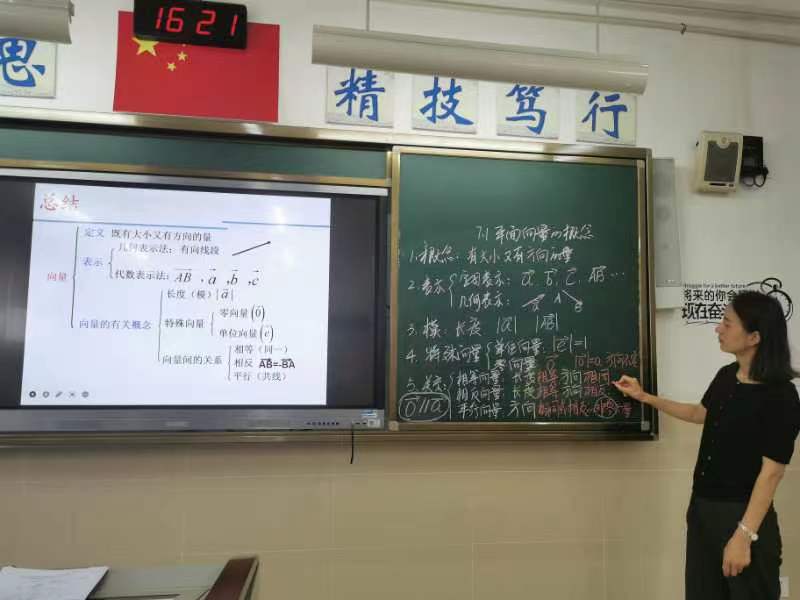 16 21
思 精 技 笃 行
总结
向量
定义 既有大小又有方向的量
表示
几何表示法：有向线段
代数表示法：AB，a，b，c
向量的有关概念
长度（模）|a|
特殊向量
零向量(0)
单位向量(e)
向量间的关系
相等（同一）
相反 AB=-BA
平行（共线）
7.1 平面向量的概念
1. 概念：有大小又有方向的量
2. 表示 字母表示：a，b，c，AB …
几何表示：
3. 模：长度 |a| |AB|
4. 特殊向量 单位向量：|e|=1
零向量：
5. 关系 相等向量：长度相等 方向相同
相反向量：长度相等 方向相反
平行向量：方向
0∥a
将来的你会
现在奋